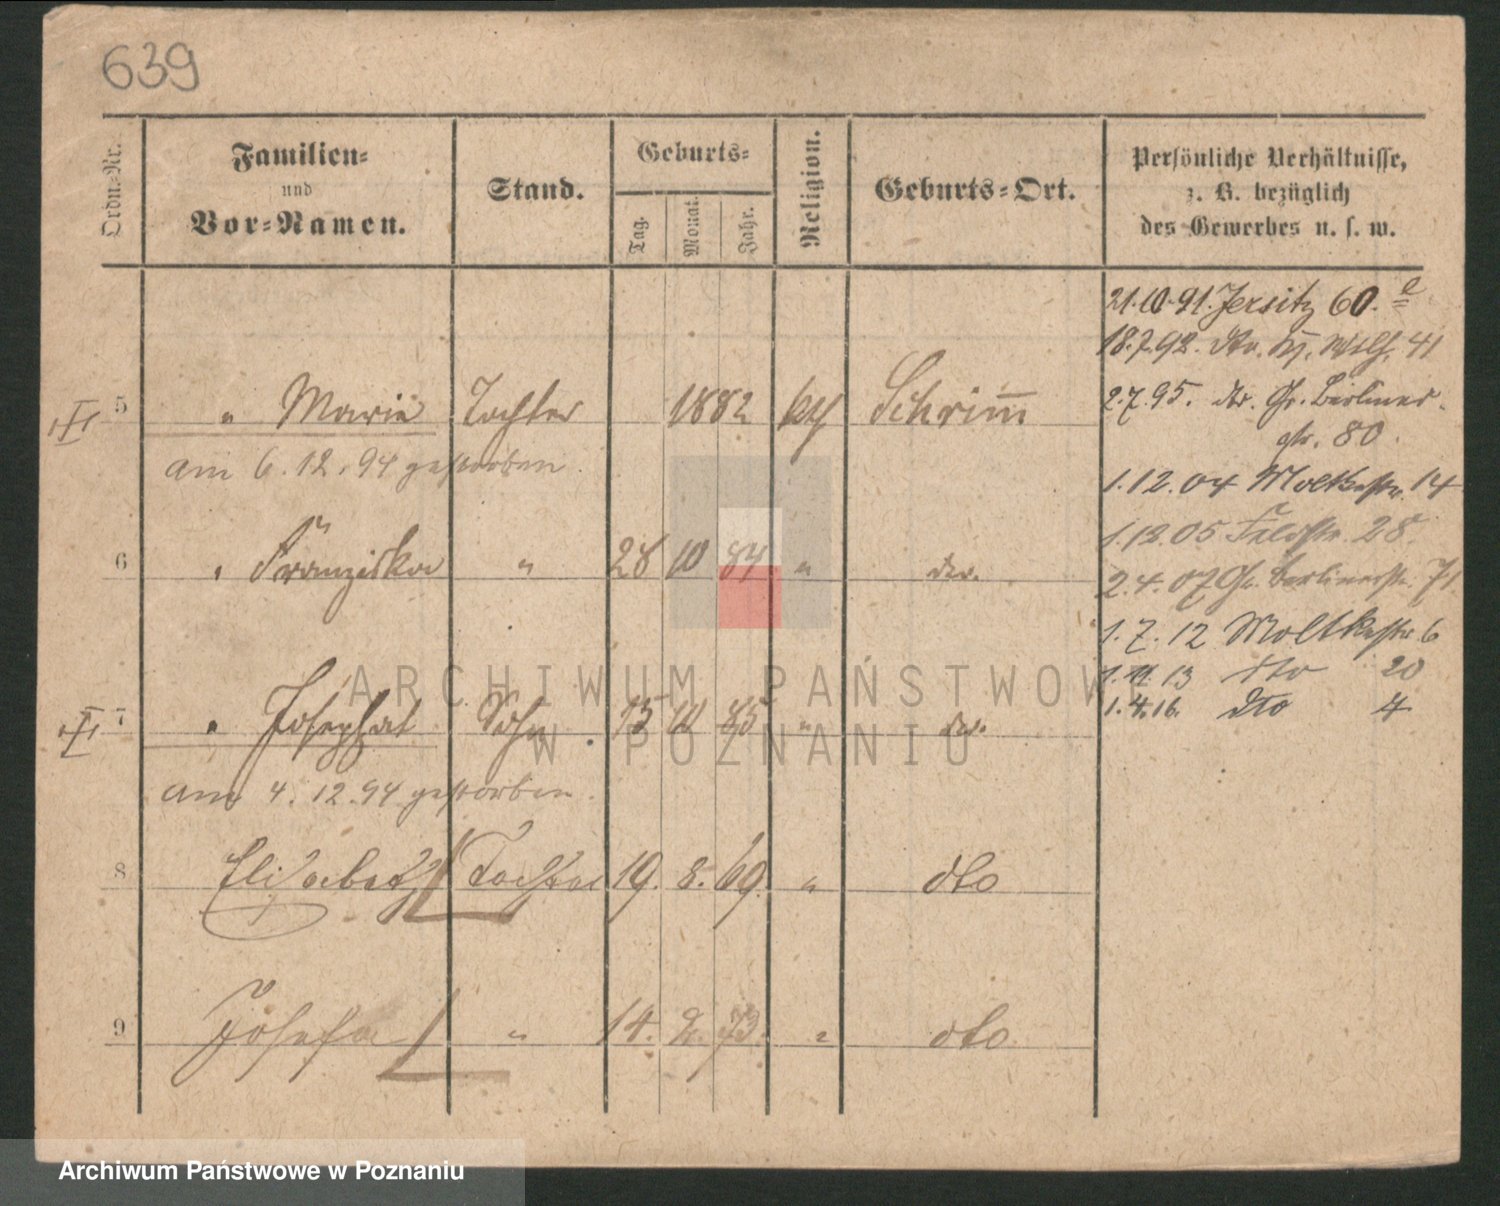 639
Ordn.-Nr.
Familien-
und
Vor-Namen.
Stand.
Geburts-
Tag.
Monat.
Jahr.
Religion.
Geburts-Ort.
Persönliche Verhältnisse,
z. B. bezüglich
des Gewerbes u. s. w.
21.10.91. Jersitz 60.
18.7.92. 41
2.7.95. dto. Gr. Berliner-
str. 80.
1.12.04 Moltkestr. 14
1.12.05 Feldstr. 28.
2.4.07 Gr. Berlinerstr. 71
1.7.12 Moltkestr. 6
1.11.13 dto 20
1.4.16. dto 4
5 " Marie Tochter 1882 kth Schrimm
am 6.12.94 gestorben.
6 " Franziska " 28 10 84 " do.
7 " Josephat Sohn 15 11 85 " do.
am 4.12.94 gestorben.
8 Elisabeth Tochter 19. 8. 69. " dto
9 Josefa " 14. 2. 73. " dto
ARCHIWUM PAŃSTWOWE
W POZNANIU
Archiwum Państwowe w Poznaniu